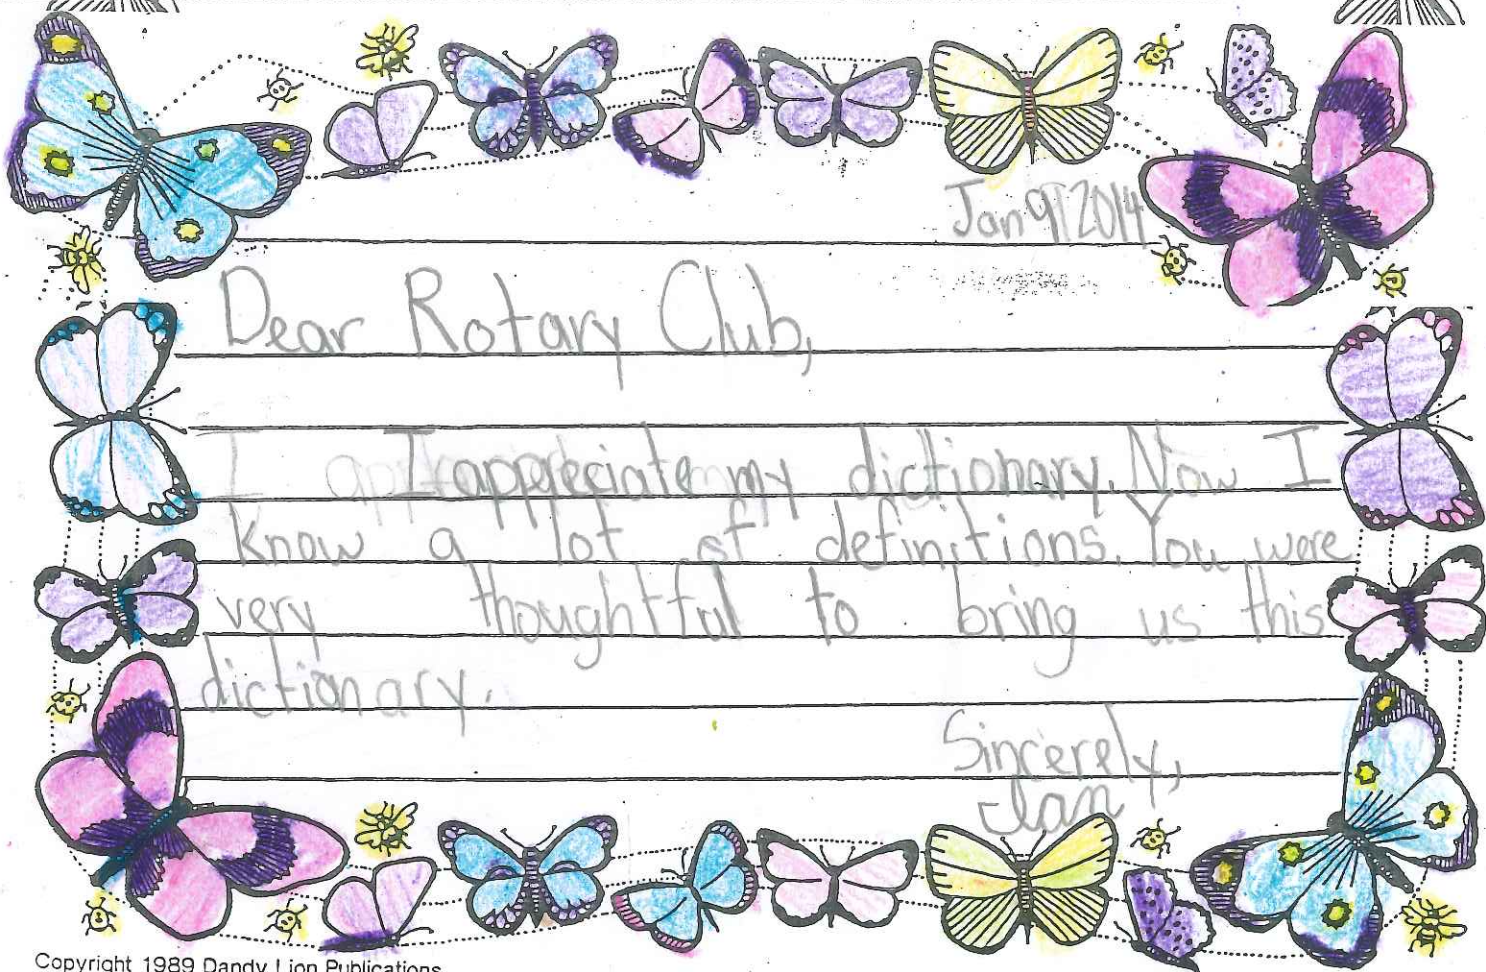 Jan 9, 2014
Dear Rotary Club,
I appreciate my dictionary. Now I
know a lot of definitions. You were
very thoughtful to bring us this
dictionary.
Sincerely,
Ian
Copyright 1989 Dandy Lion Publications